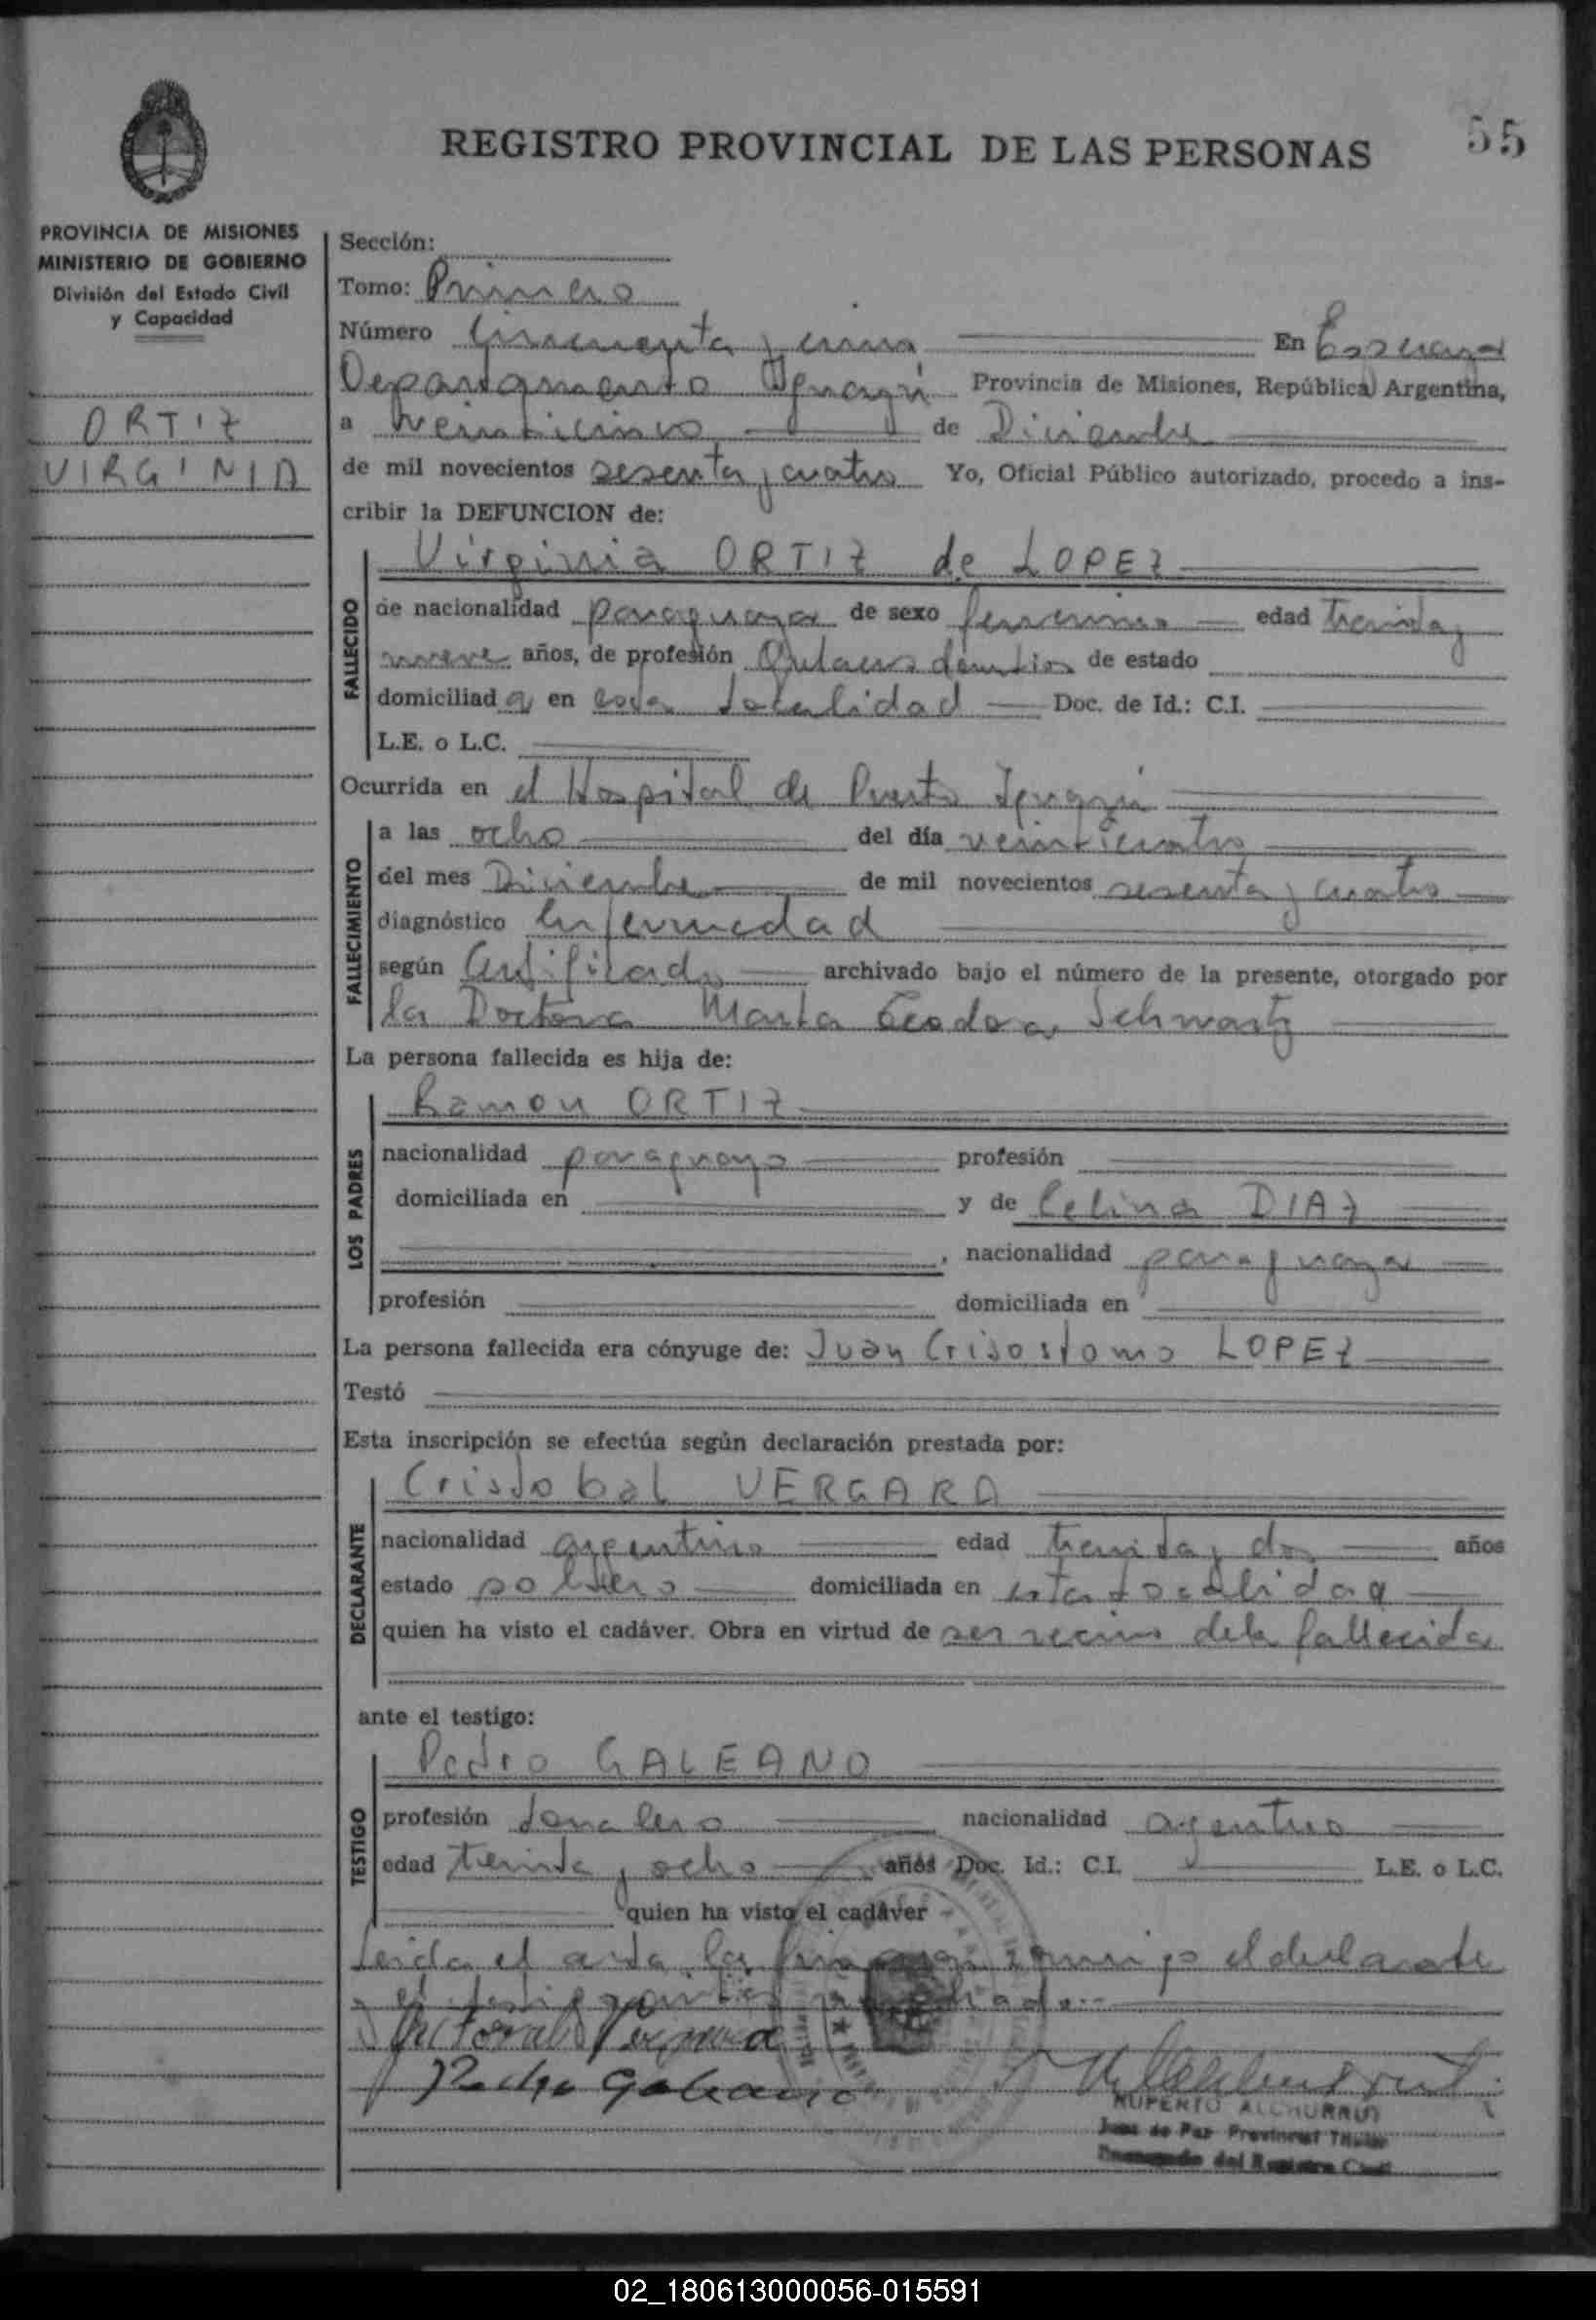 55
REGISTRO PROVINCIAL DE LAS PERSONAS
PROVINCIA DE MISIONES
MINISTERIO DE GOBIERNO
División del Estado Civil
y Capacidad
ORTIZ
VIRGINIA
Sección:
Tomo: Primero
Número Cincuenta y cinco En Esperanza
Departamento Iguazú Provincia de Misiones, República Argentina,
a veinticinco de Diciembre
de mil novecientos sesenta y cuatro Yo, Oficial Público autorizado, procedo a ins-
cribir la DEFUNCION de:
FALLECIDO
Virginia ORTIZ de LOPEZ
de nacionalidad paraguaya de sexo femenino edad treinta y
nueve años, de profesión de estado
domiciliad a en esta localidad Doc. de Id.: C.I.
L.E. o L.C.
Ocurrida en el Hospital de Puerto Iguazú
FALLECIMIENTO
a las ocho del día veinticuatro
del mes Diciembre de mil novecientos sesenta y cuatro
diagnóstico Enfermedad
según Certificado archivado bajo el número de la presente, otorgado por
la Doctora Marta Teodora Schwartz
La persona fallecida es hija de:
LOS PADRES
Ramon ORTIZ
nacionalidad paraguayo profesión
domiciliada en y de Celina DIAZ
, nacionalidad paraguaya
profesión domiciliada en
La persona fallecida era cónyuge de: Juan Crisostomo LOPEZ
Testó
Esta inscripción se efectúa según declaración prestada por:
DECLARANTE
Cristobal VERGARA
nacionalidad argentino edad treinta y dos años
estado soltero domiciliada en esta localidad
quien ha visto el cadáver. Obra en virtud de ser vecino de la fallecida
ante el testigo:
TESTIGO
Pedro GALEANO
profesión Jornalero nacionalidad argentino
edad treinta y ocho años Doc. Id.: C.I. L.E. o L.C.
quien ha visto el cadáver
Leida el acta la firman conmigo el declarante
y el testigo
Pedro Galeano
RUPERTO
Juez de Paz Provincial Titular
Encargado del Registro Civil
02_180613000056-015591